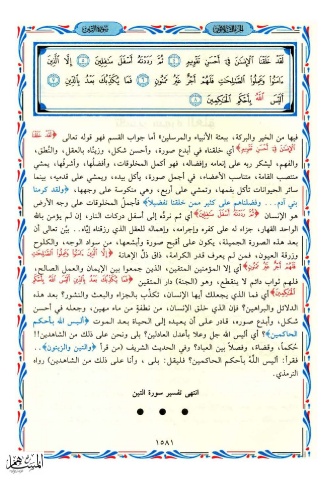 سورة التين
الجزء الثلاثون
لَقَدْ خَلَقْنَا الْإِنسَانَ فِي أَحْسَنِ تَقْوِيمٍ ٤ ثُمَّ رَدَدْنَاهُ أَسْفَلَ سَافِلِينَ ٥ إِلَّا الَّذِينَ
ءَامَنُوا وَعَمِلُوا الصَّالِحَاتِ فَلَهُمْ أَجْرٌ غَيْرُ مَمْنُونٍ ٦ فَمَا يُكَذِّبُكَ بَعْدُ بِالدِّينِ ٧
أَلَيْسَ اللَّهُ بِأَحْكَمِ الْحَاكِمِينَ ٨
فيها من الخير والبركة، ببعثة الأنبياء والمرسلين! أما جواب القسم فهو قوله تعالى ﴿لَقَدْ خَلَقْنَا
الْإِنسَانَ فِي أَحْسَنِ تَقْوِيمٍ﴾ أي خلقناه في أبدع صورة، وأحسن شكل، وزيناه بالعقل، والنطق،
والفهم، ليشكر ربه على إنعامه وإفضاله، فهو أكمل المخلوقات، وأفضلها، وأشرفها، يمشي
منتصب القامة، متناسب الأعضاء، في أجمل صورة، يأكل بيده، ويمشي على قدميه، بينما
سائر الحيوانات تأكل بفمها، وتمشي على أربع، وهي منكوسة على وجهها، ﴿ولقد كرمنا
بني آدم... وفضلناهم على كثير ممن خلقنا تفضيلاً﴾ فأجمل المخلوقات على وجه الأرض
هو الإنسان ﴿ثُمَّ رَدَدْنَاهُ أَسْفَلَ سَافِلِينَ﴾ أي ثم نردّه إلى أسفل دركات النار، إن لم يؤمن بالله
الواحد القهار، جزاء له على كفره وإجرامه، وإهماله للعقل الذي رزقناه إيّاه.. بيّن تعالى أن
بعد هذه الصورة الجميلة، يكون على أقبح صورة وأبشعها، من سواد الوجه، والكلوح
وزرقة العيون، فمن لم يعرف قدر الكرامة، ذاق ذلّ الإهانة ﴿إِلَّا الَّذِينَ ءَامَنُوا وَعَمِلُوا الصَّالِحَاتِ
فَلَهُمْ أَجْرٌ غَيْرُ مَمْنُونٍ﴾ أي إلا المؤمنين المتقين، الذين جمعوا بين الإيمان والعمل الصالح،
فلهم ثواب دائم لا ينقطع، وهو (الجنة) دار المتقين ﴿فَمَا يُكَذِّبُكَ بَعْدُ بِالدِّينِ أَلَيْسَ اللَّهُ بِأَحْكَمِ
الْحَاكِمِينَ﴾ أي فما الذي يجعلك أيها الإنسان، تكذّب بالجزاء والبعث والنشور؟ بعد هذه
الدلائل والبراهين؟ فإن الذي خلق الإنسان، من نطفة من ماء مهين، وجعله في أحسن
شكل، وأبدع صوره، قادر على أن يعيده إلى الحياة بعد الموت ﴿أليس الله بأحكم
الحاكمين﴾؟ أي أليس الله جل وعلا بأعدل العادلين؟ بلى ونحن على ذلك من الشاهدين!!
حُكماً، وقضاءً، وفصلاً بين العباد؟ وفي الحديث الشريف (من قرأ ﴿والتين والزيتون..﴾
فقرأ: أليس اللَّهُ بأحكم الحاكمين؟ فليقل: بلى، وأنا على ذلك من الشاهدين) رواه
الترمذي.
انتهى تفسير سورة التين
١٥٨١